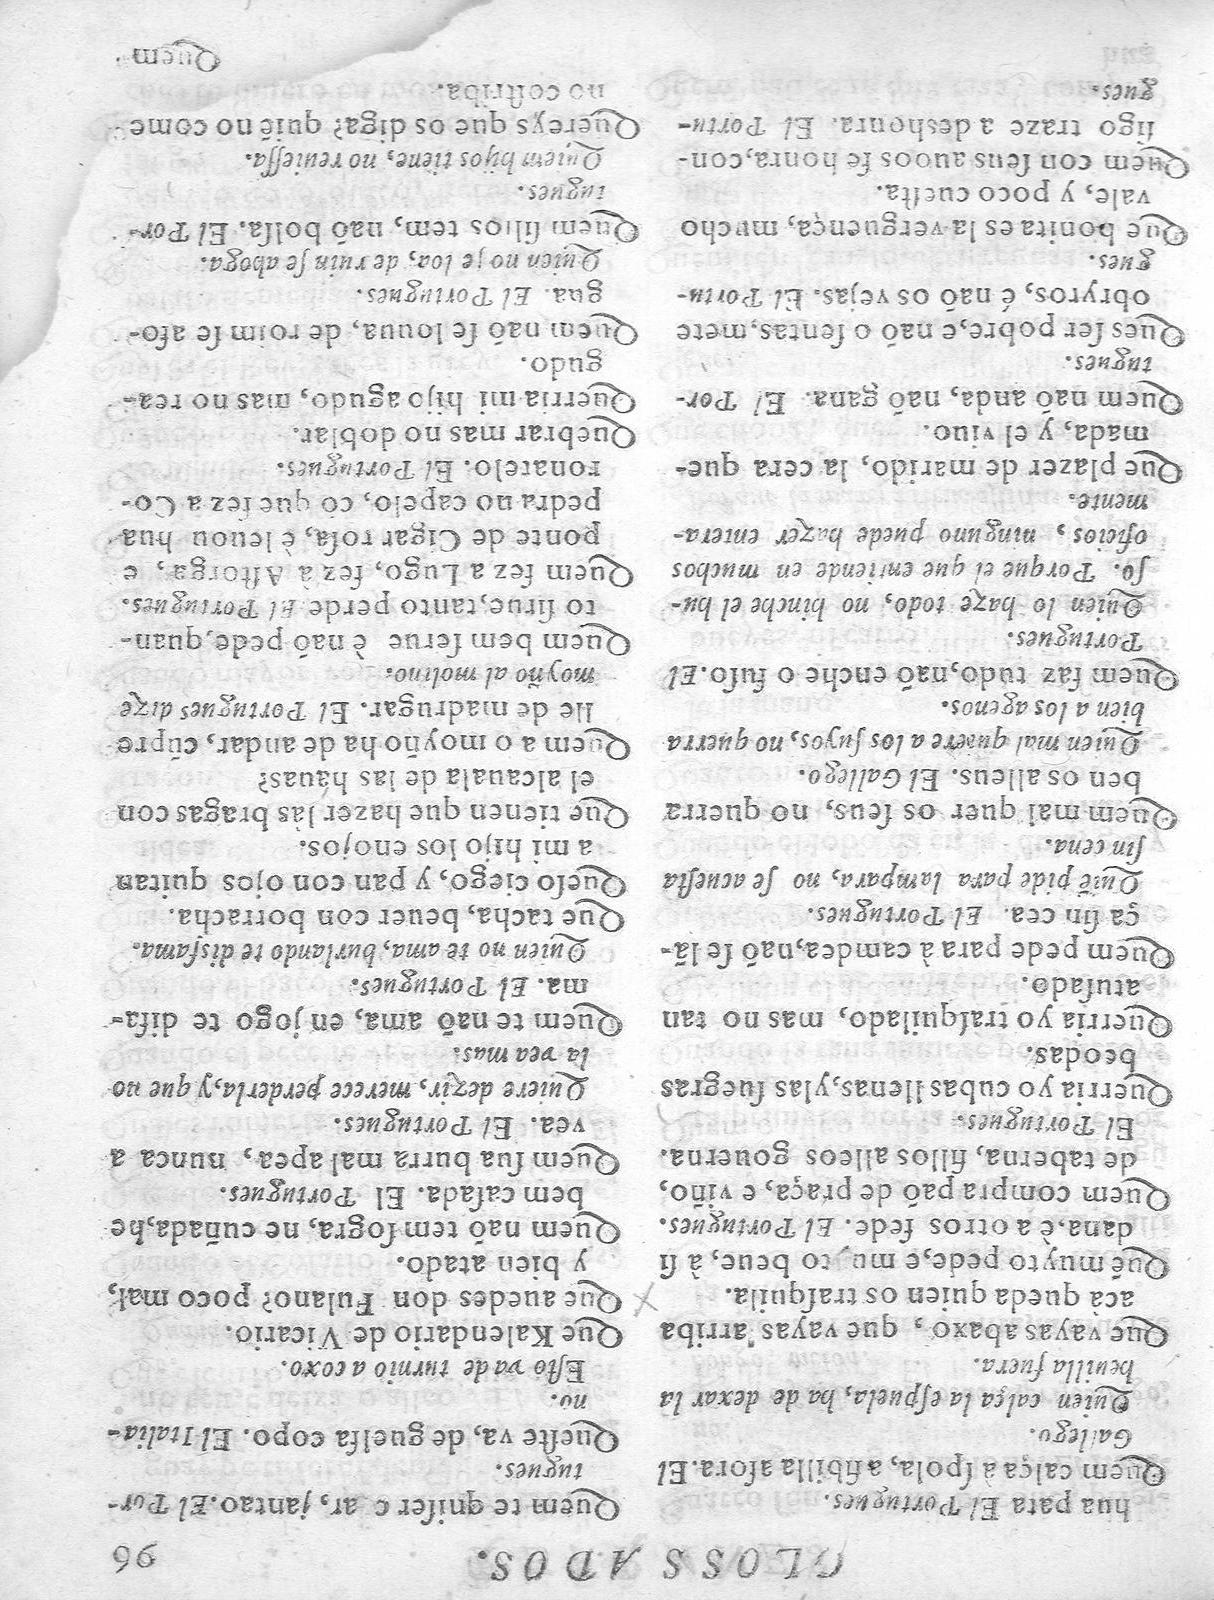 GLOSSADOS. 96
hua pata El Portugues.
Quem calça à ſpola, a fibilla afora. El
Gallego.
Quien calça la eſpuela, ha de dexar la
heuilla fuera.
Que vayas abaxo, que vayas arriba
acà queda quien os traſquila.
Quẽ muyto pede, e muyto beue, à ſi
dana, è a otros fede. El Portugues.
Quem compra paõ de praça, e viño,
de taberna, fillos alleos gouerna.
El Portugues.
Querria yo cubas llenas, y las ſuegras
beodas.
Querria yo traſquilado, mas no tan
atuſado.
Quem pede para à camdea, naõ ſe lã-
ça ſin cea. El Portugues.
Quiẽ pide para lampara, no ſe acueſta
ſin cena.
Quem mal quer os ſeus, no querra
ben os alleus. El Gallego.
Quien mal quiere a los ſuyos, no querra
bien a los agenos.
Quem faz tudo, naõ enche o fuſo. El
Portugues.
Quien lo haze todo, no hinche el hu-
ſo. Porque el que entiende en muchos
oficios, ninguno puede hazer entera-
mente.
Que plazer de marido, la cera que-
mada, y el viuo.
Quem naõ anda, naõ gana. El Por-
tugues.
Ques ſer pobre, e naõ o ſentas, mete
obryros, é naõ os vejas. El Portu-
gues.
Que bonita es la verguença, mucho
vale, y poco cueſta.
Quem con ſeus auoos ſe honra, con-
ſigo traze a deshonra. El Portu-
gues.
Quem te quiſer c ar, jantao. El Por-
tugues.
Queſte va, de guelfa copo. El Italia-
no.
Eſto va de turnio a coxo.
Que Kalendario de Vicario.
Que auedes don Fulano? poco mal,
y bien atado.
Quem naõ tem ſogra, ne cuñada, he
bem caſada. El Portugues.
Quem ſua burra mal apea, nunca a
vea. El Portugues.
Quiere dezir, merece perderla, y que no
la vea mas.
Quem te naõ ama, en jogo te difa-
ma. El Portugues.
Quien no te ama, burlando te disfama.
Que tacha, beuer con borracha.
Queſo ciego, y pan con ojos quitan
a mi hijo los enojos.
Que tienen que hazer las bragas con
el alcauala de las hauas?
Quem a o moyño ha de andar, cũpre
lle de madrugar. El Portugues dize
moyño al molino.
Quem bem ſerue è naõ pede, quan-
to ſirue, tanto perde El Portugues.
Quem fez a Lugo, fez à Aſtorga, e
ponte de Cigarroſa, è leuou hua
pedra no capelo, cõ que fez a Co-
ronatelo. El Portugues.
Quebrar mas no doblar.
Querria mi hijo agudo, mas no rea-
gudo.
Quem naõ ſe louua, de roim ſe afo-
gua. El Portugues.
Quien no ſe loa, de ruin ſe ahoga.
Quem filhos tem, naõ bolſa. El Por-
tugues.
Quien hijos tiene, no reuieſſa.
Quereys que os diga? quiẽ no come
no coſtriba.
Quem